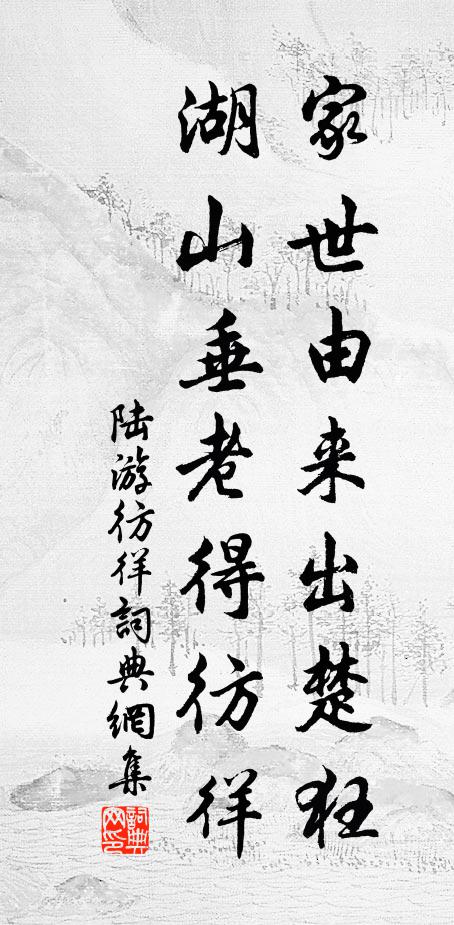 家世由来出楚狂
湖山垂老得彷徉
陆游彷徉詞典網集
詞典網印